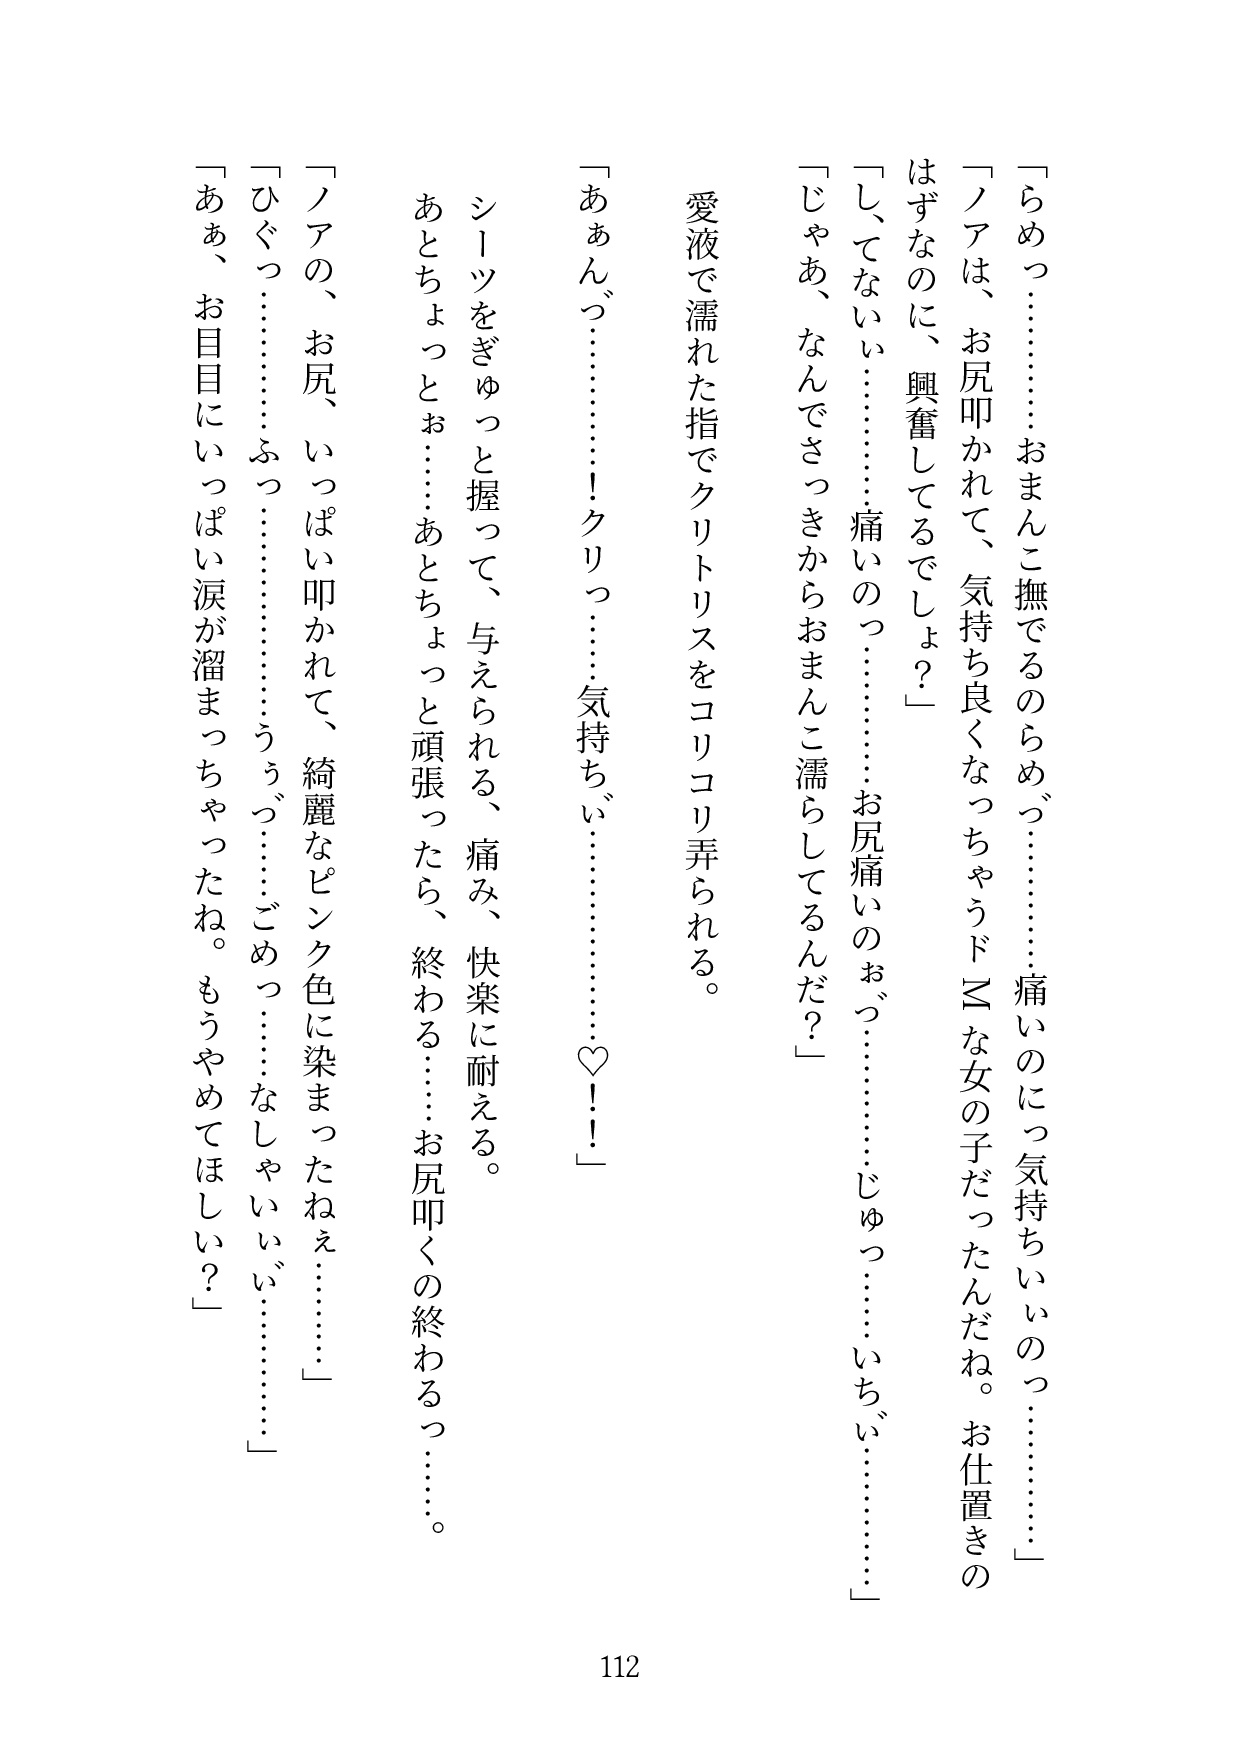 「らめっ…………おまんこ撫でるのらめ゙っ…………痛いのにっ気持ちいぃのっ…………」
「ノアは、お尻叩かれて、気持ち良くなっちゃうドMな女の子だったんだね。お仕置きの
はずなのに、興奮してるでしょ？」
「し、てないぃ…………痛いのっ…………お尻痛いのぉ゙っ…………じゅっ……いちぃ゙…………」
「じゃあ、なんでさっきからおまんこ濡らしてるんだ？」
愛液で濡れた指でクリトリスをコリコリ弄られる。
「あぁん゙っ…………！クリっ……気持ちぃ゙………………♡！！」
シーツをぎゅっと握って、与えられる、痛み、快楽に耐える。
あとちょっとぉ……あとちょっと頑張ったら、終わる……お尻叩くの終わるっ……。
「ノアの、お尻、いっぱい叩かれて、綺麗なピンク色に染まったねぇ………」
「ひぐっ…………ふっ………………うぅ゙っ……ごめっ……なしゃいぃい゙…………」
「あぁ、お目目にいっぱい涙が溜まっちゃったね。もうやめてほしい？」
112